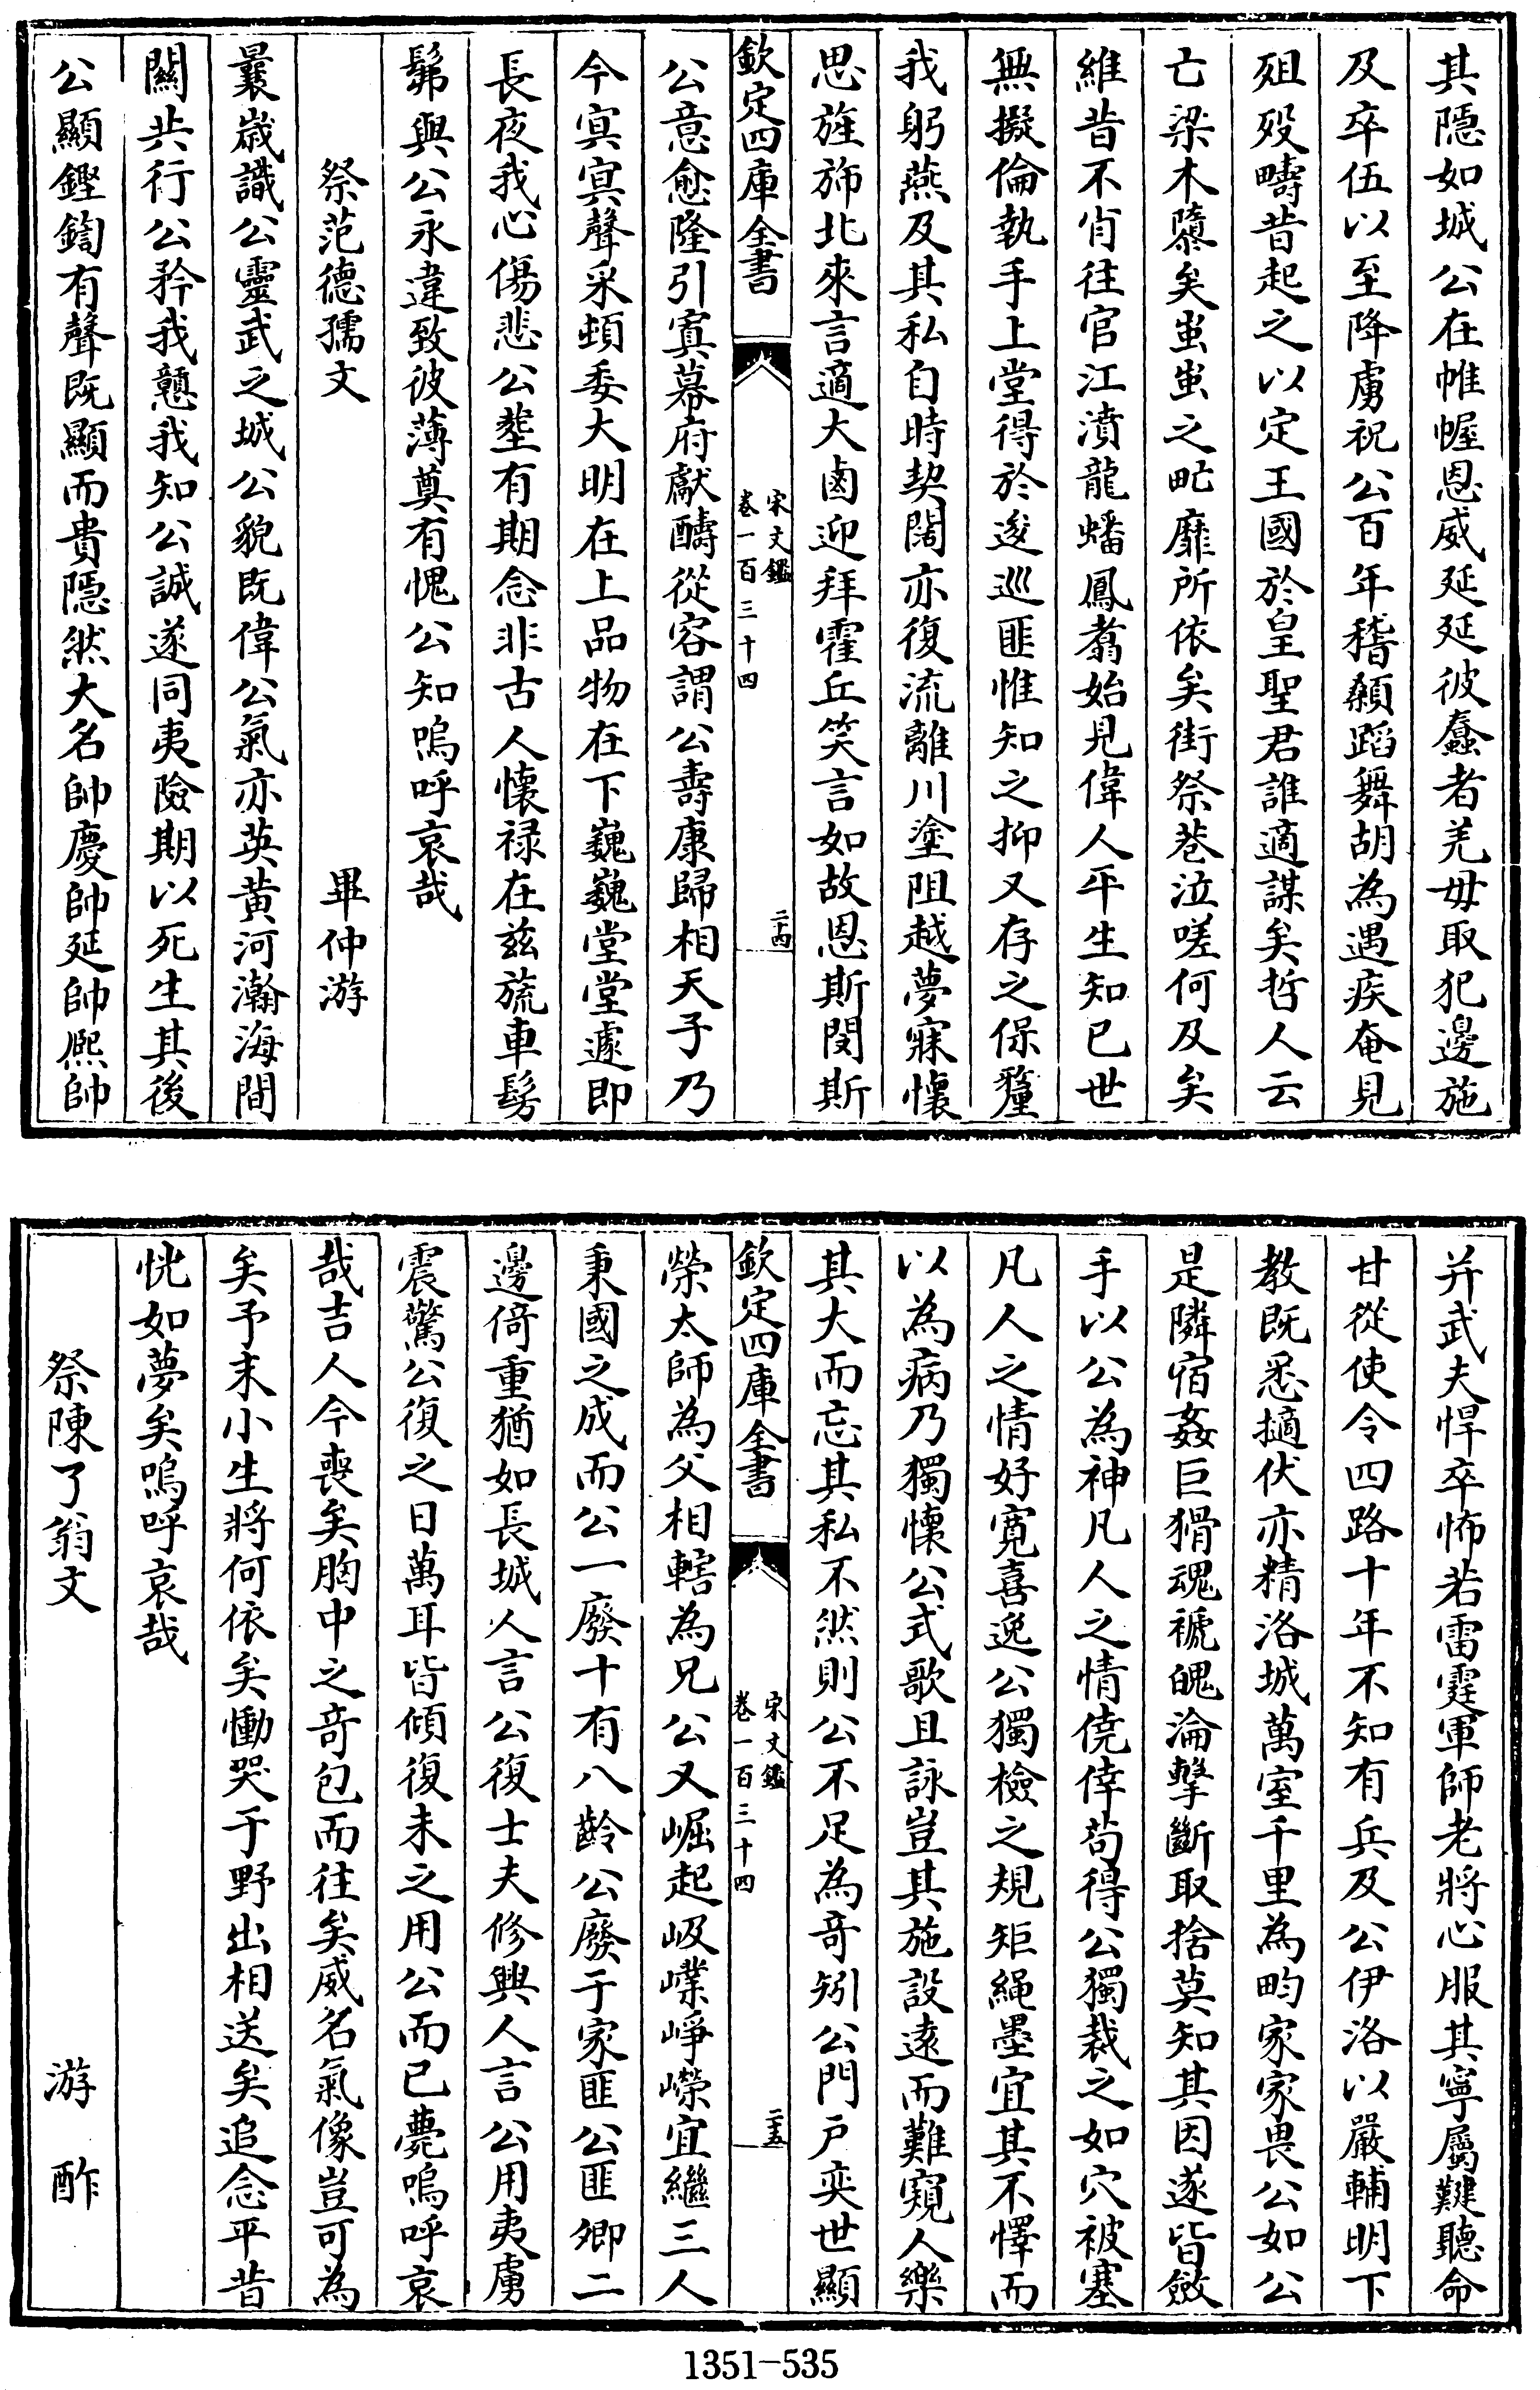 其隠如城公在帷幄恩威延延彼蠢者羌毋取犯邊施
及卒伍以至降虜祝公百年稽顙蹈舞胡為遇疾奄見
殂歿疇昔起之以定王國於皇聖君誰適謀矣哲人云
亡梁木隳矣蚩蚩之甿靡所依矣街祭巷泣嗟何及矣
維昔不肖往官江濆龍蟠鳳翥始見偉人平生知已世
無擬倫執手上堂得於逡巡匪惟知之抑又存之保釐
我躬燕及其私自時契闊亦復流離川塗阻越夢寐懷
思旌斾北來言適大鹵迎拜霍丘笑言如故恩斯閔斯
欽定四庫全書
宋文鑑
卷一百三十四
二十四
公意愈隆引寘幕府獻酬從容謂公壽康歸相天子乃
今寘寘聲采頓委大明在上品物在下巍巍堂堂遽即
長夜我心傷悲公塟有期念非古人懷禄在茲旒車髣
髴與公永違致彼薄奠有愧公知嗚呼哀哉
祭范德孺文 畢仲游
曩歲識公靈武之城公貌既偉公氣亦英黃河瀚海間
關共行公矜我戇我知公誠遂同夷險期以死生其後
公顯鏗鍧有聲既顯而貴隠然大名帥慶帥延帥熈帥
并武夫悍卒怖若雷霆軍師老將心服其寧屬鞬聽命
甘從使令四路十年不知有兵及公伊洛以嚴輔明下
教既悉擿伏亦精洛城萬室千里為畇家家畏公如公
是隣宿姦巨猾魂褫魄淪擊斷取捨莫知其因遂皆斂
手以公為神凡人之情僥倖苟得公獨裁之如穴被塞
凡人之情好寛喜逸公獨檢之規矩繩墨宜其不懌而
以為病乃獨懷公式歌且詠豈其施設逺而難窺人樂
其大而忘其私不然則公不足為竒矧公門戶奕世顯
欽定四庫全書
宋文鑑
卷一百三十四
二十五
榮太師為父相轄為兄公又崛起岋嶫崢嶸宜繼三人
秉國之成而公一廢十有八齡公廢于家匪公匪卿二
邊倚重猶如長城人言公復士夫修興人言公用夷虜
震驚公復之日萬耳皆傾復未之用公而已薨嗚呼哀
哉吉人今喪矣胸中之竒包而往矣威名氣像豈可為
矣予末小生將何依矣慟哭于野出相送矣追念平昔
恍如夢矣嗚呼哀哉
祭陳了翁文 游酢
1351-535